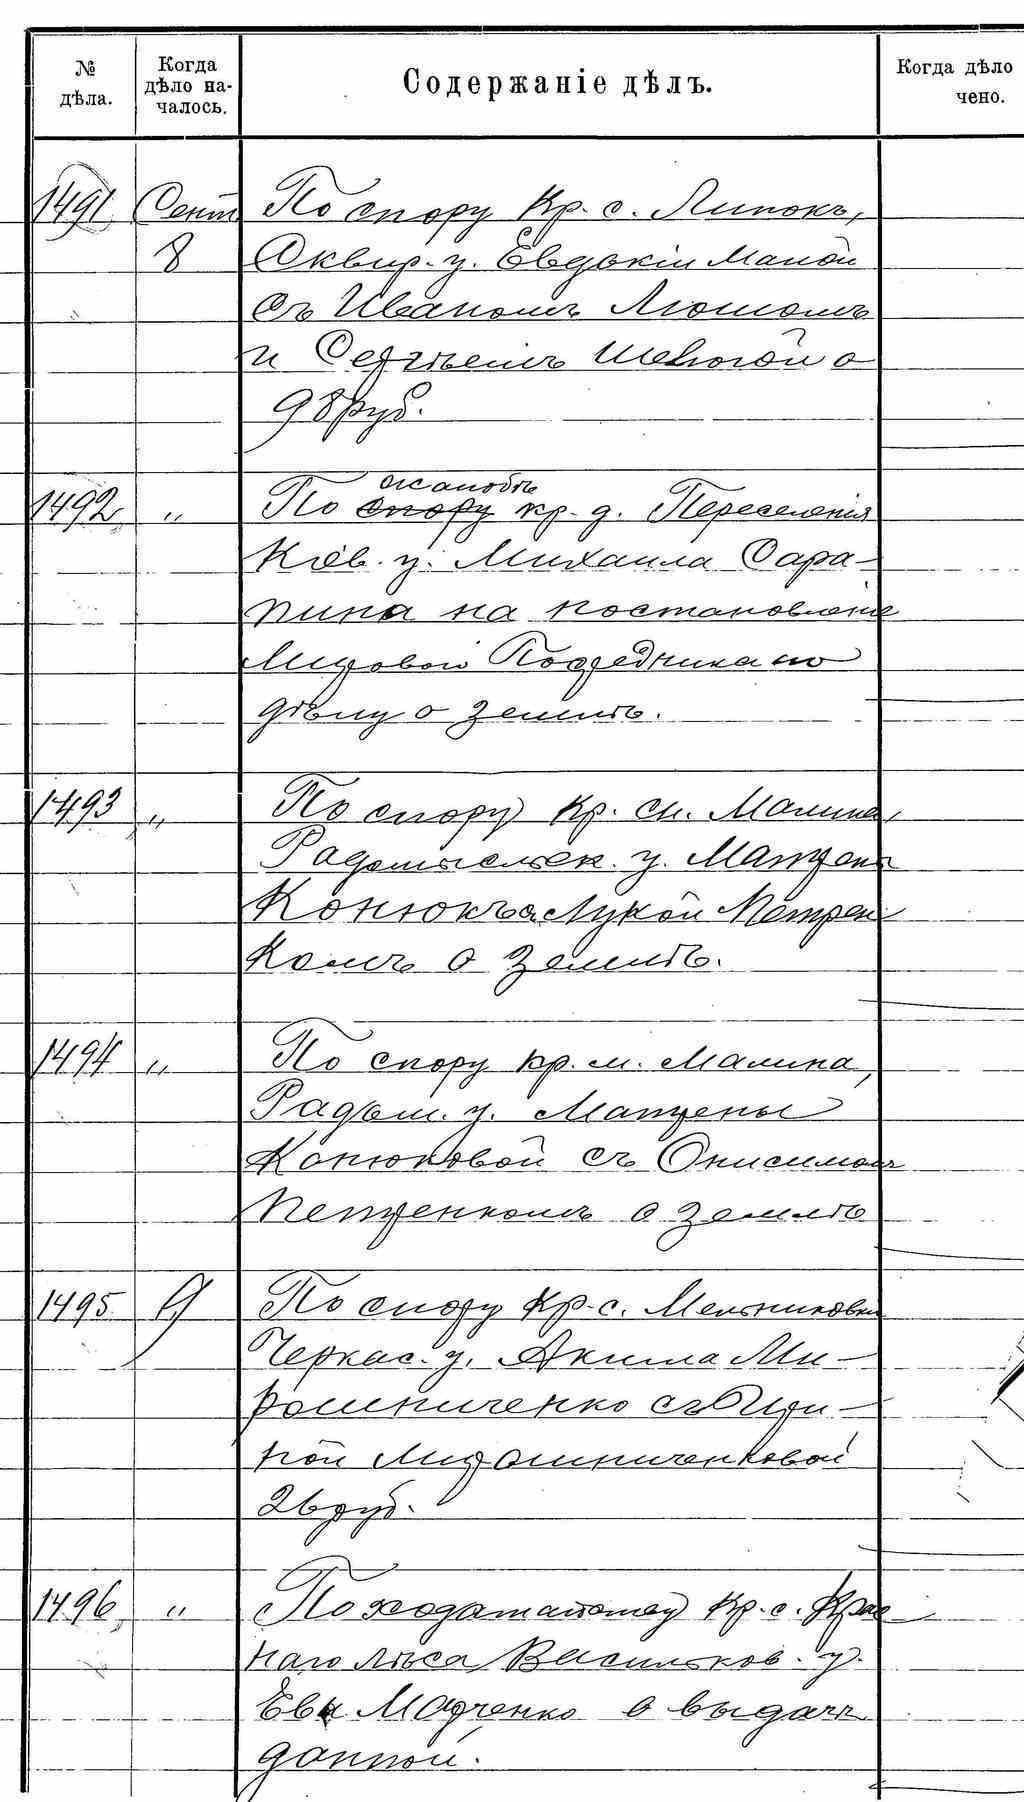 № дѣла.
Когда дѣло на-
чалось.
Содержаніе дѣлъ.
Когда дѣло
чено.
1491 Сент. По спору Кр. с. Липокъ,
8 Сквир. у. Евдокіи Малой
съ Иваномъ Люшомъ
и Сергѣемъ Шевогой о
98 руб.
жалобѣ
1492 " По спору кр. д. Переселенія
Кіев. у. Михаила Сара-
пина на постановленіе
Мировой Посредника по
дѣлу о землѣ.
1493 " По спору Кр. м. Малина,
Радомысльск. у. Матрены
Конюкъ съ Лукой Петрен-
комъ о землѣ.
1494 " По спору кр. м. Малина,
Радом. у. Матрены
Конюковой съ Онисимомъ
Петренкомъ о землѣ
1495 9 По спору Кр. с. Мельниковки
Черкас. у. Акима Ми-
рошниченко съ Ири-
ной Мирошниченковой
26 руб.
1496 " По ходатайству Кр. с. Крас
наго Лѣса Васильков. у.
Евы Марченко о выдачѣ
данной.